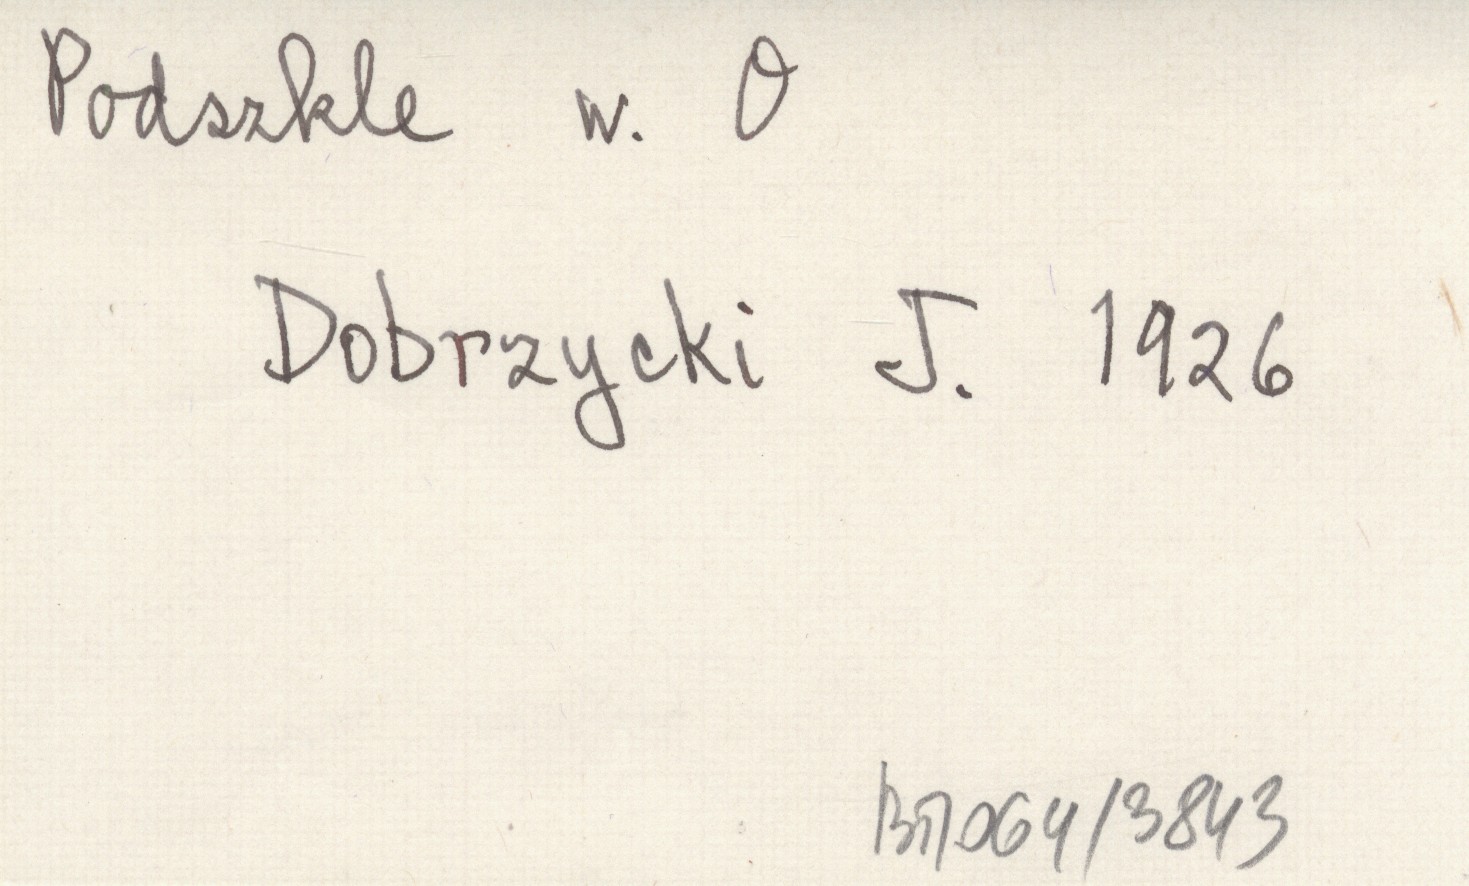 Podszkle w. O
Dobrzycki J. 1926
BП064/3843